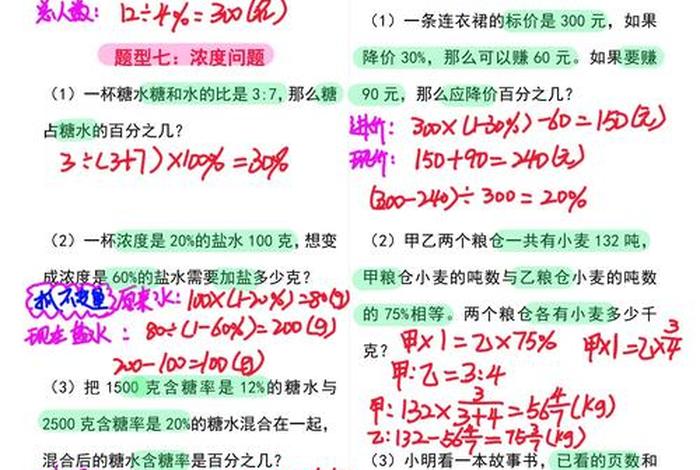 总人数: 12÷4%=300(元)
题型七：浓度问题
（1）一杯糖水糖和水的比是3:7，那么糖
占糖水的百分之几？
3÷(3+7)×100%=30%
（2）一杯浓度是20%的盐水100克，想变
成浓度是60%的盐水需要加盐多少克？
抓不变量 原来水: 100×(1-20%)=80(g)
现在盐水: 80÷(1-60%)=200(g)
200-100=100(g)
（3）把1500克含糖率是12%的糖水与
2500克含糖率是20%的糖水混合在一起，
混合后的糖水含糖率是百分之几？
（1）一条连衣裙的标价是300元，如果
降价30%，那么可以赚60元。如果要赚
90元，那么应降价百分之几？
进价: 300×(1-30%)-60=150(元)
现价: 150+90=240(元)
(300-240)÷300=20%
（2）甲乙两个粮仓一共有小麦132吨，
甲粮仓小麦的吨数与乙粮仓小麦的吨数
的75%相等。两个粮仓各有小麦多少千
克？ 甲×1=乙×75% 甲×1=乙×3/4
甲:乙=3:4
甲: 132×3/(3+4)=56 4/7(kg)
乙: 132-56 4/7=75 3/7(kg)
（3）小明看一本故事书，已看的页数和